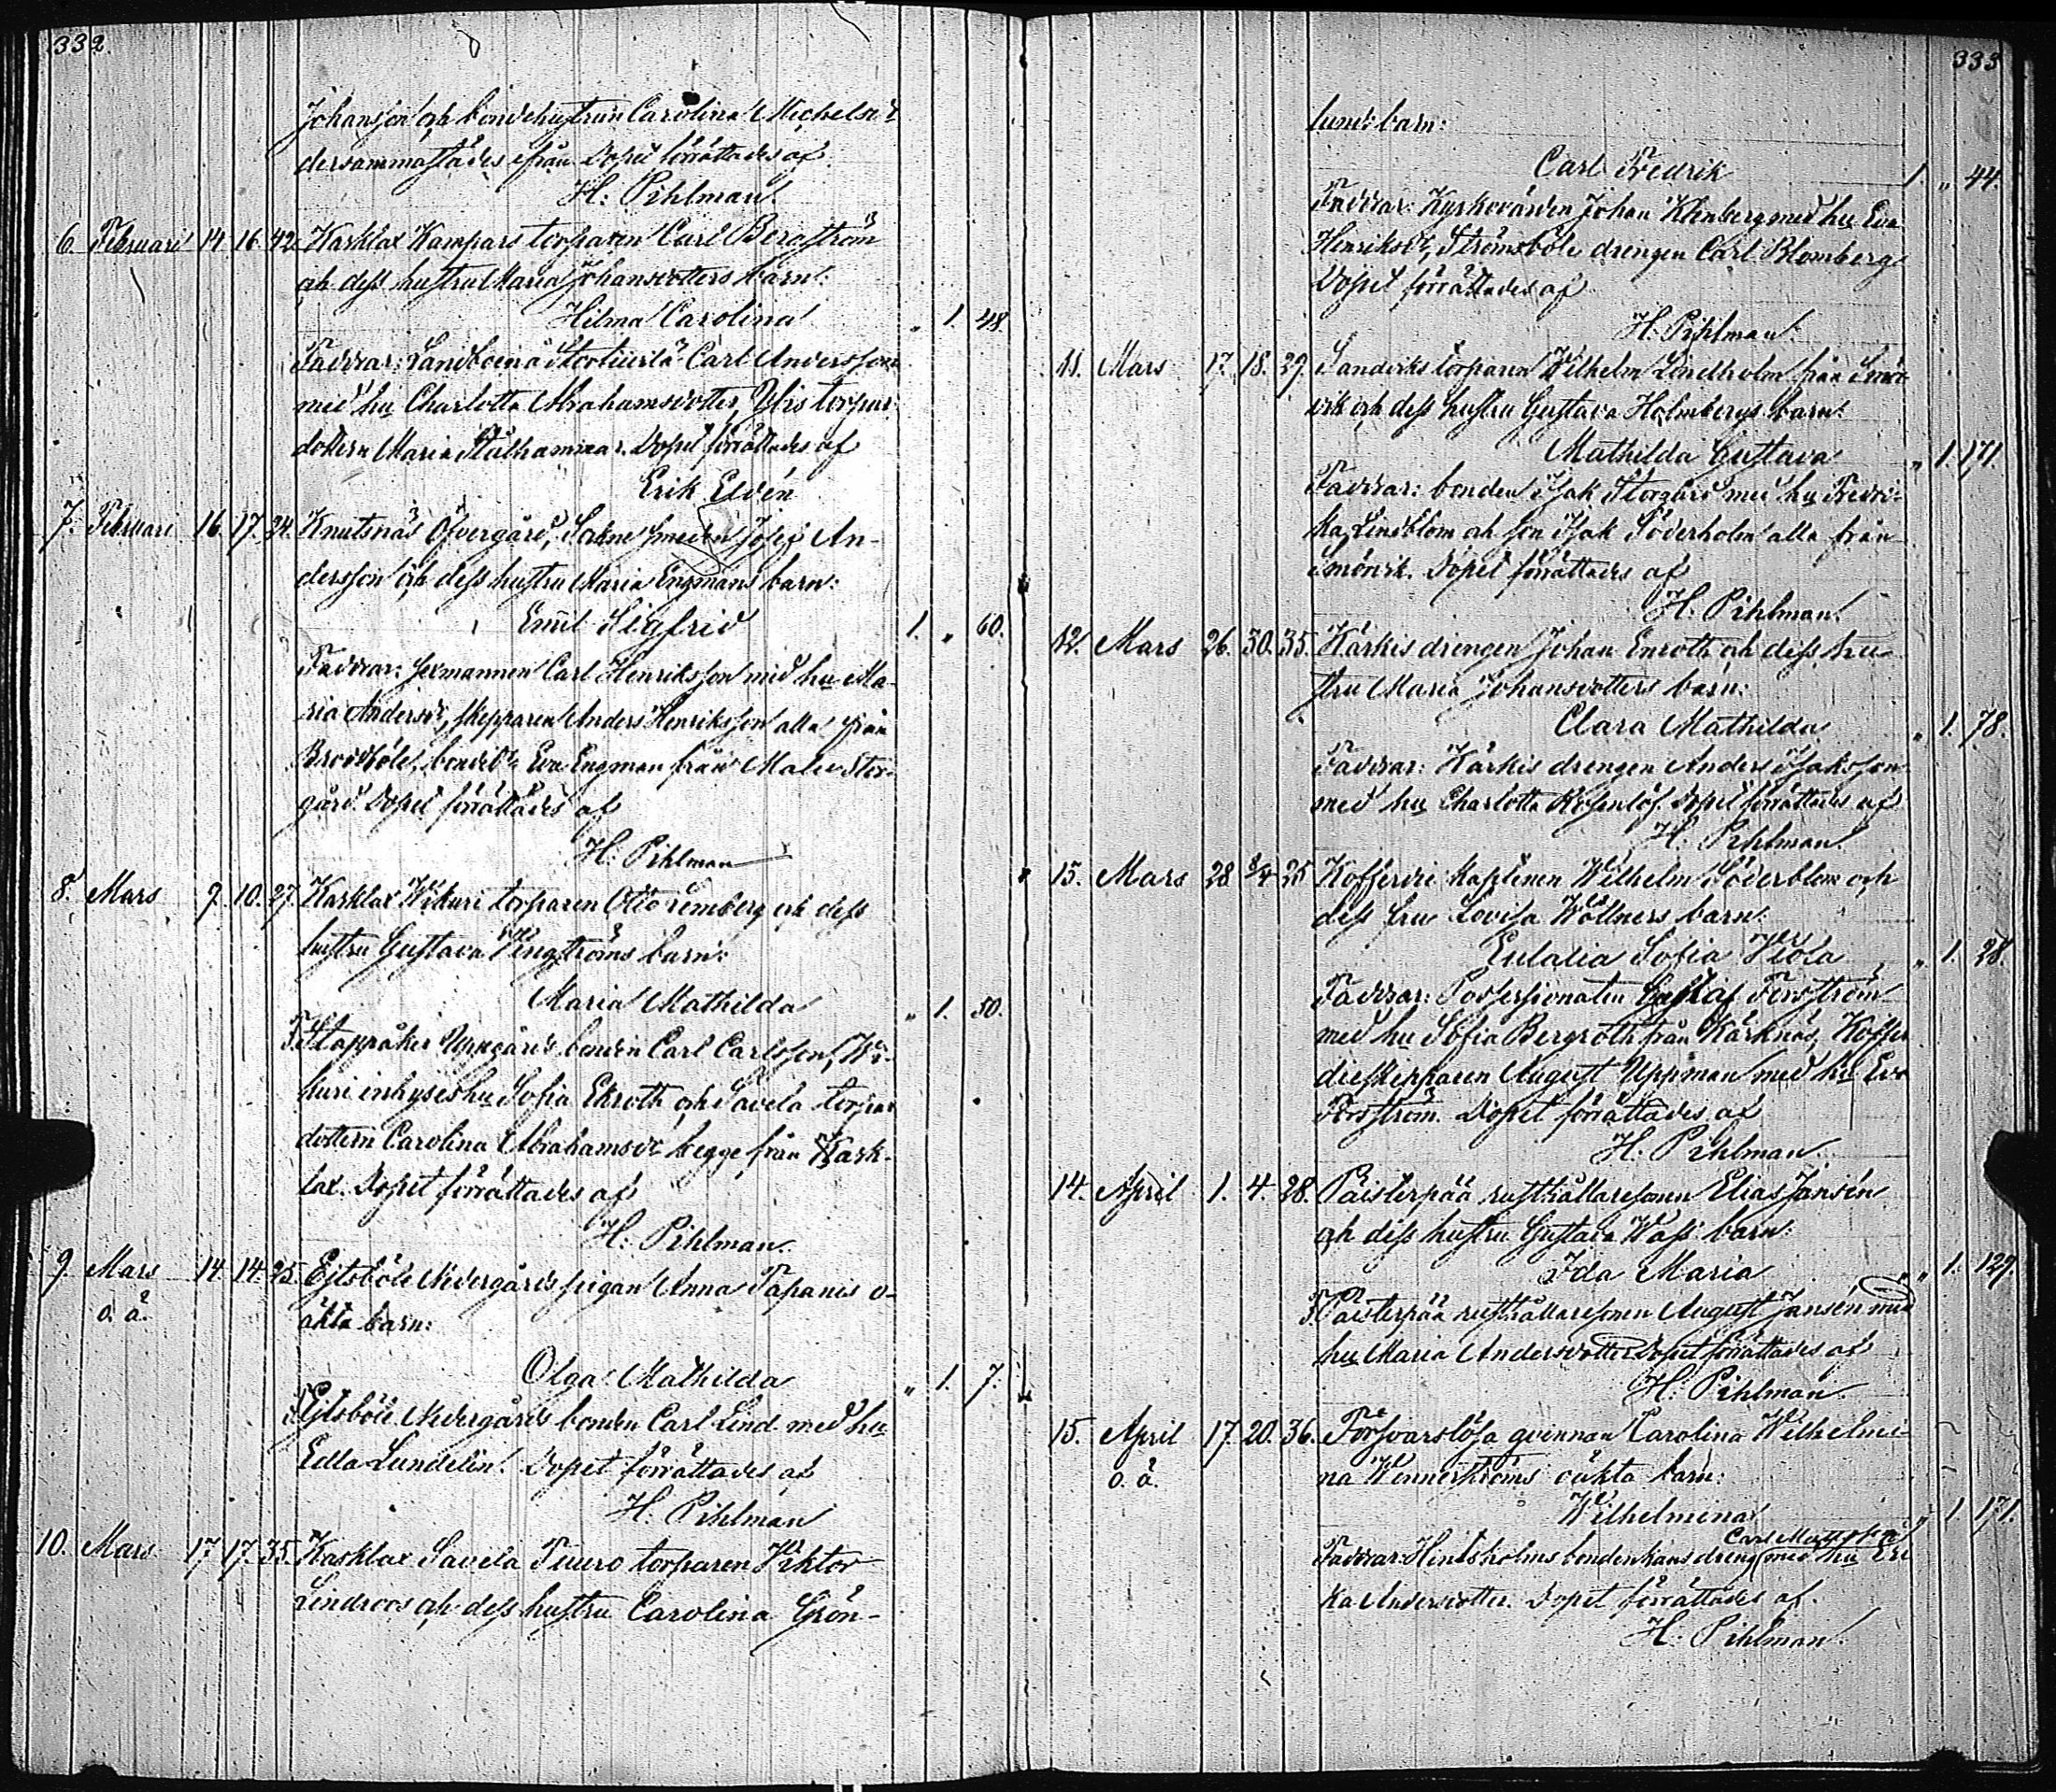 332
Johansson och bondehustrun Carolina Michelsdr
dersammastädes ifrån. Dopet förrättades af
H: Pihlman.
6. Februari 14. 16. 42. Karklax Kampars torparen Carl Bergström
och dess hustru Maria Johansdotters barn:
Hilma Carolina „ 1. 48.
Faddrar: Landboen å Stortuerla Carl Andersson
med hu Charlotta Abrahamsdotter, torpar
dottern Maria Stålhammar. Dopet förrättades af
Erik Eldén
7. Februari 16. 17. 24. Knutsnäs Öfvergård, Sockne smeden Josef An-
dersson och dess hustru Maria Engmans barn:
Emil Sigfrid 1. „ 60.
Faddrar: sexmannen Carl Henriksson med hu Ma-
ria Andersdr, skepparen Anders Henriksson alla från
Brödböle, bonded: Eva Engman från Malu Stor-
gård. Dopet förrättades af
H: Pihlman
8. Mars 9. 10. 27. Karklax Wikuri torparen OttoRemberg och dess
hustru Gustava Wengströms barn:
Maria Mathilda „ 1. 50.
F. Stapråker Uppgårds bonden Carl Carlsson, Wi-
kuri inhyses hu Sofia Ekroth och Savela torpar
dottern Carolina Abrahamsdr begge från Kark-
lax. Dopet förrättades af
H: Pihlman.
9. Mars 14. 14. 25. Ejtsböle Nedergårds pigan Anna Tapanis o-
o. ä. äkta barn:
Olga Mathilda „ 1. 7.
F. Ejtsböle Nedergårds bonden Carl Lind med hu
Edla Lundelin. Dopet förrättades af
H: Pihlman
10. Mars 17. 17. 35. Karklax Savela Tuuro torparen Viktor
Lindroos och dess hustru Carolina Grön-
333
lunds barn:
Carl Fredrik 1. „ 44.
Faddrar: Kyrkovärden Johan Klinberg med hu Eva
Henriksdr, Strömsböle drengen Carl Blomberg
Dopet förrättades af
H: Pihlman.
11. Mars 17. 18. 29. Sandviks torparen Wilhelm Lindholm från
och dess hustru Gustava Holmbergs barn:
Mathilda Gustava „ 1. 171.
Faddrar: bonden Isak Storgård med hu Fredri-
ka Lindblom och son Isak Söderholm alla från
Dopet förrättades af
H: Pihlman.
12. Mars 26. 30. 35. Kärkis drengen Johan Enroth och dess hu-
stru Maria Johansdotters barn:
Clara Mathilda „ 1. 78.
Faddrar: Kärkis drengen Anders Isaksson
med hu Charlotta Rosenlöf. Dopet förrättades af
H: Pihlman
13. Mars 28 3/4 25 Kofferdi kaptenen Wilhelm Söderblom och
dess fru Lovisa Wöllners barn:
Eulalia Sofia Viola „ 1. 28.
Faddrar: Possessionaten Gustaf Forsström
med hu Sofia Bergroth från Kärknäs, Koffer
dieskepparen August Uppman med hu Eva
Forsström. Dopet förrättades af
H: Pihlman.
14. April 1. 4. 28. Päisterpää rusthållaresonen Elias Jansén
och dess hustru Gustava Wass barn:
Ida Maria „ 1. 129.
F. Päisterpää rusthållaresonen August Jansén med
hu Maria Andersdotter. Dopet förrättades af
H: Pihlman
15. April 17. 20. 36. Försvarslösa qvinnan Carolina Wilhelmi-
o. ä. na Wennerströms oäkta barn:
Wilhelmina „ 1 171.
Carl Mattsson
Faddrar: Hintsholms bonden hans dreng med hu Eri
ka Andersdotter. Dopet förrättades af.
H: Pihlman.